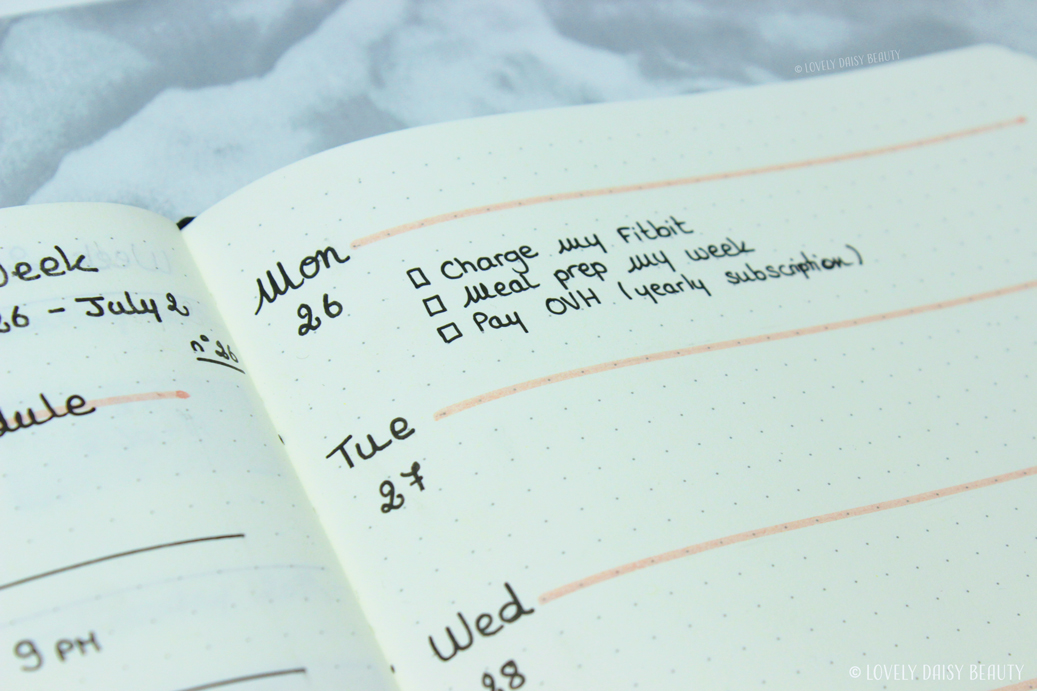 © LOVELY DAISY BEAUTY
Week
26 - July 2
n° 26
dule
9 PM
Mon
26
Charge my Fitbit
Meal prep my week
Pay OVH (yearly subscription)
Tue
27
Wed
28
© LOVELY DAISY BEAUTY